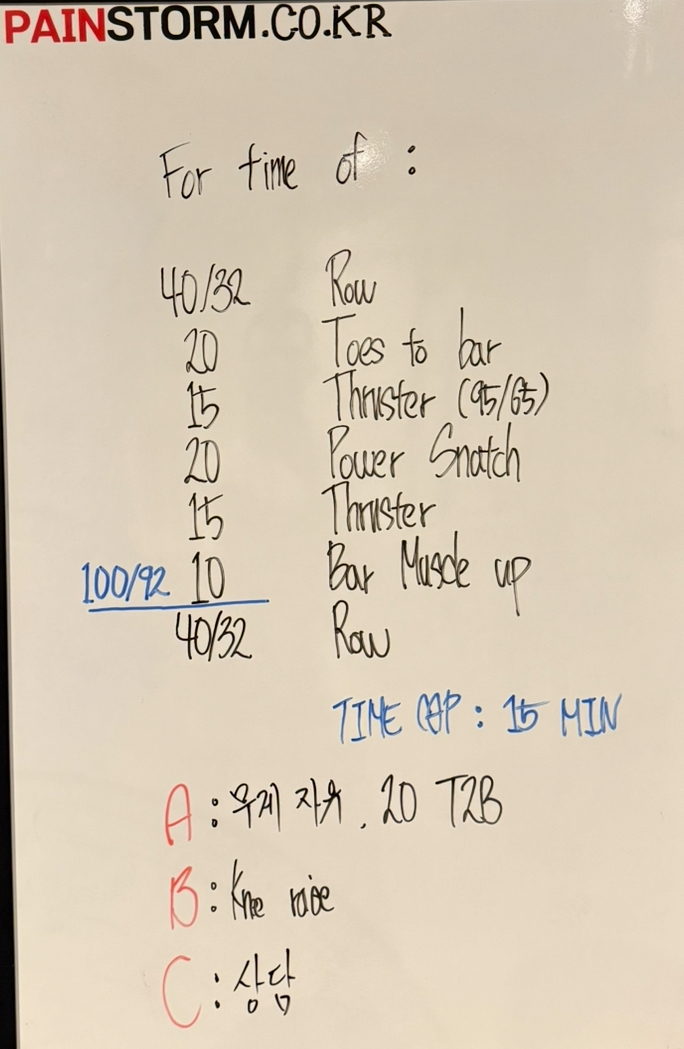 PAINSTORM.CO.KR
For time of :
40/32 Row
20 Toes to bar
15 Thruster (95/65)
20 Power Snatch
15 Thruster
100/92 10 Bar Muscle up
40/32 Row
TIME CAP : 15 MIN
A : 무게 자유. 20 T2B
B : Knee raise
C : 상담